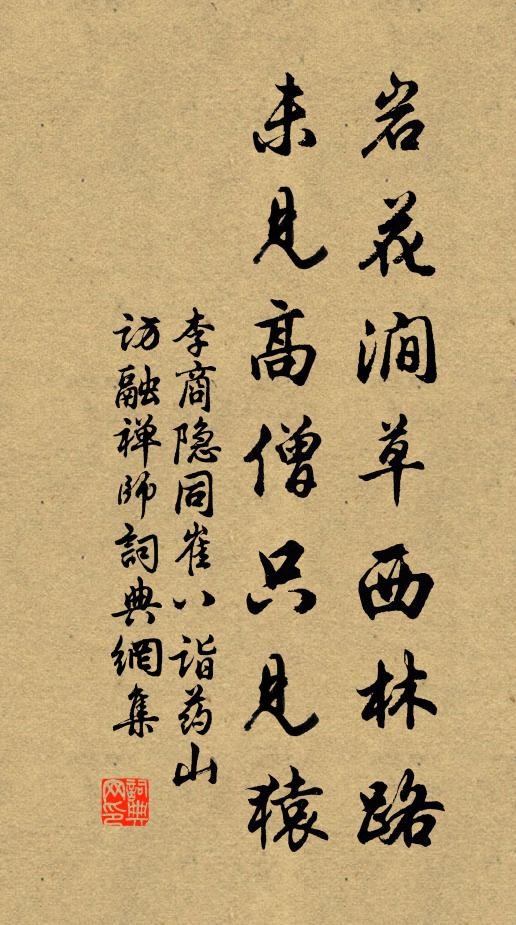 岩花涧草西林路
未见高僧只见猿
李商隐同崔八诣药山
访融禅师词典網集
詞典
网印